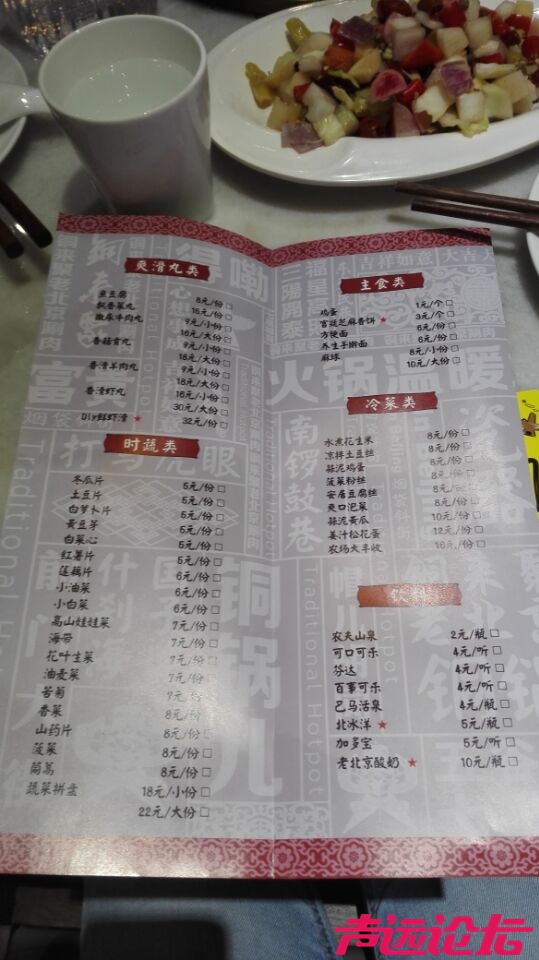 爽滑丸类
鱼豆腐 8元/份□
飘香菜丸 15元/份□
撒尿牛肉丸 9元/小份□
16元/大份□
香菇贡丸 9元/小份□
18元/大份□
香滑羊肉丸 9元/小份□
18元/大份□
香滑虾丸 16元/小份□
30元/大份□
DIY鲜虾滑★ 32元/份□
时蔬类
冬瓜片 5元/份□
土豆片 5元/份□
白萝卜片 5元/份□
黄豆芽 5元/份□
白菜心 5元/份□
红薯片 5元/份□
莲藕片 6元/份□
小油菜 6元/份□
小白菜 6元/份□
高山娃娃菜 7元/份□
海带 7元/份□
花叶生菜 7元/份□
油麦菜 7元/份□
苦菊 7元/份□
香菜 8元/份□
山药片 8元/份□
菠菜 8元/份□
茼蒿 8元/份□
蔬菜拼盘 18元/小份□
22元/大份□
主食类
鸡蛋 1元/个□
宫廷芝麻香饼★ 3元/个□
方便面 6元/份□
养生手擀面 6元/份□
麻球 8元/小份□
10元/大份□
冷菜类
水煮花生米 8元/份□
凉拌土豆丝 8元/份□
蒜泥鸡蛋 8元/份□
菠菜粉丝 8元/份□
安居豆腐丝 8元/份□
爽口泡菜 8元/份□
蒜泥黄瓜 10元/份□
姜汁松花蛋 12元/份□
农场大丰收 16元/份□
饮料
农夫山泉 2元/瓶□
可口可乐 4元/听□
芬达 4元/听□
百事可乐 4元/听□
巴马活泉 4元/瓶□
北冰洋★ 5元/瓶□
加多宝 5元/听□
老北京酸奶★ 10元/瓶□
得嘞
火锅温暖
南锣鼓巷
铜锅儿
Traditional Hotpot
声远论坛